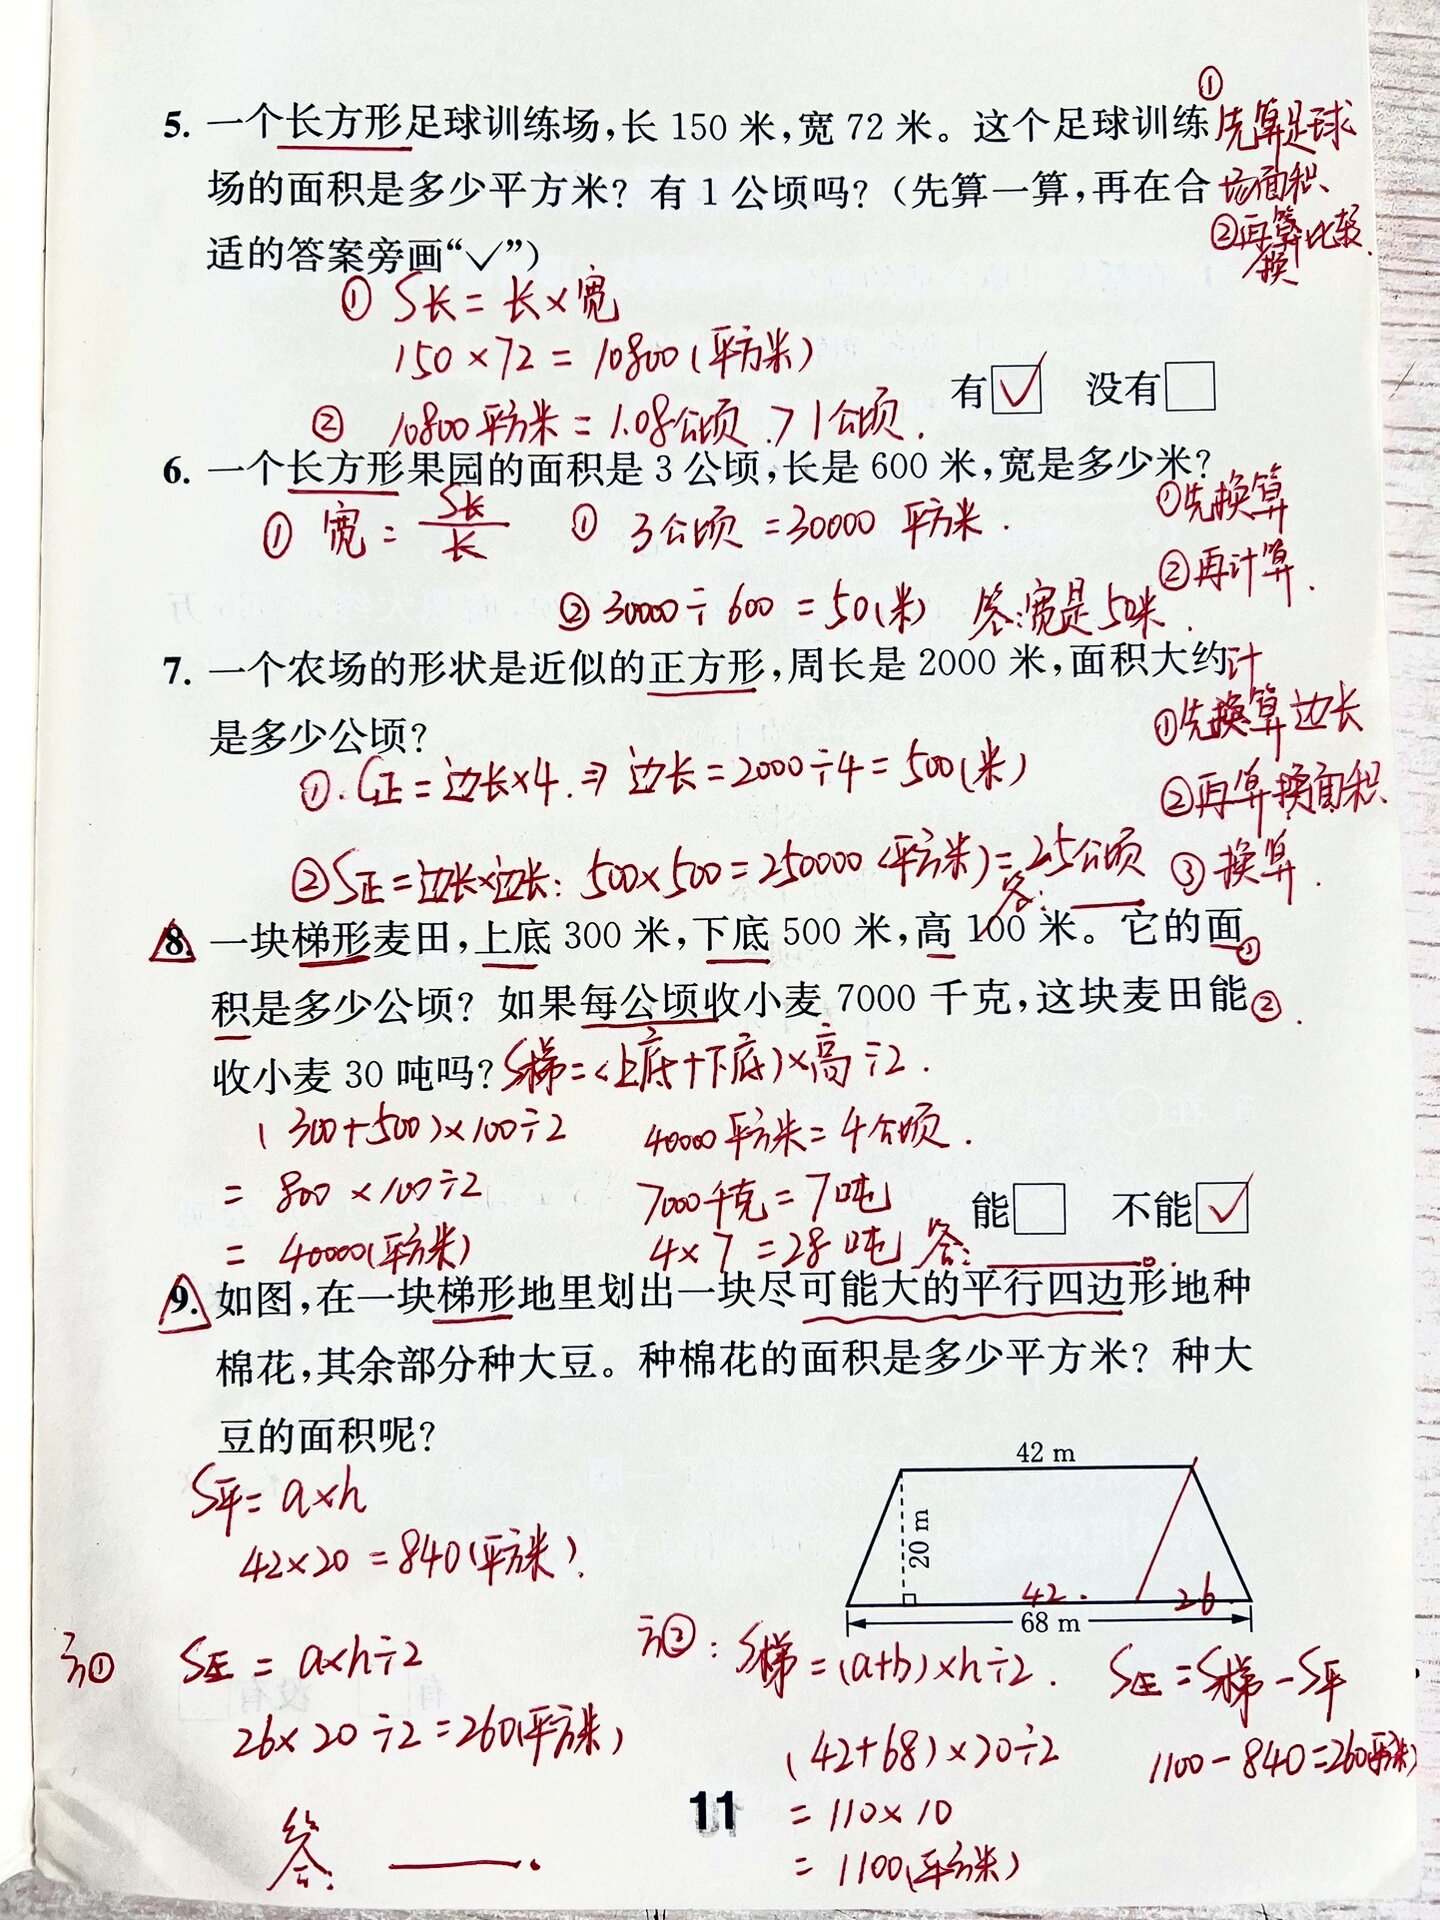 5. 一个长方形足球训练场,长 150 米,宽 72 米。这个足球训练
场的面积是多少平方米? 有 1 公顷吗?(先算一算,再在合
适的答案旁画“✓”)
①
先算足球
场面积
②再算比较
换
① S长 = 长×宽
150×72 = 10800(平方米)
有 ✓ 没有
② 10800平方米 = 1.08公顷 > 1公顷.
6. 一个长方形果园的面积是 3 公顷,长是 600 米,宽是多少米?
①先换算
②再计算.
① 宽 = S长/长
① 3公顷 = 30000 平方米.
② 30000÷600 = 50(米) 答:宽是50米.
7. 一个农场的形状是近似的正方形,周长是 2000 米,面积大约
是多少公顷?
计
①先换算边长
②再算换面积
③换算.
①. C正 = 边长×4. ⇒ 边长 = 2000÷4 = 500(米)
② S正 = 边长×边长: 500×500 = 250000(平方米) = 25公顷
答:
8. 一块梯形麦田,上底 300 米,下底 500 米,高 100 米。它的面①
积是多少公顷? 如果每公顷收小麦 7000 千克,这块麦田能②.
收小麦 30 吨吗? S梯=(上底+下底)×高÷2.
(300+500)×100÷2
= 800×100÷2
= 40000(平方米)
40000平方米 = 4公顷.
7000千克 = 7吨
4×7 = 28吨 答:
能 不能 ✓
9. 如图,在一块梯形地里划出一块尽可能大的平行四边形地种
棉花,其余部分种大豆。种棉花的面积是多少平方米? 种大
豆的面积呢?
S平 = a×h
42×20 = 840(平方米).
42 m
20 m
42. 26
68 m
方① S三 = a×h÷2
26×20÷2 = 260(平方米)
方②: S梯 = (a+b)×h÷2.
(42+68)×20÷2
= 110×10
= 1100(平方米)
S三 = S梯 - S平
1100-840=260(平方米)
答:
11